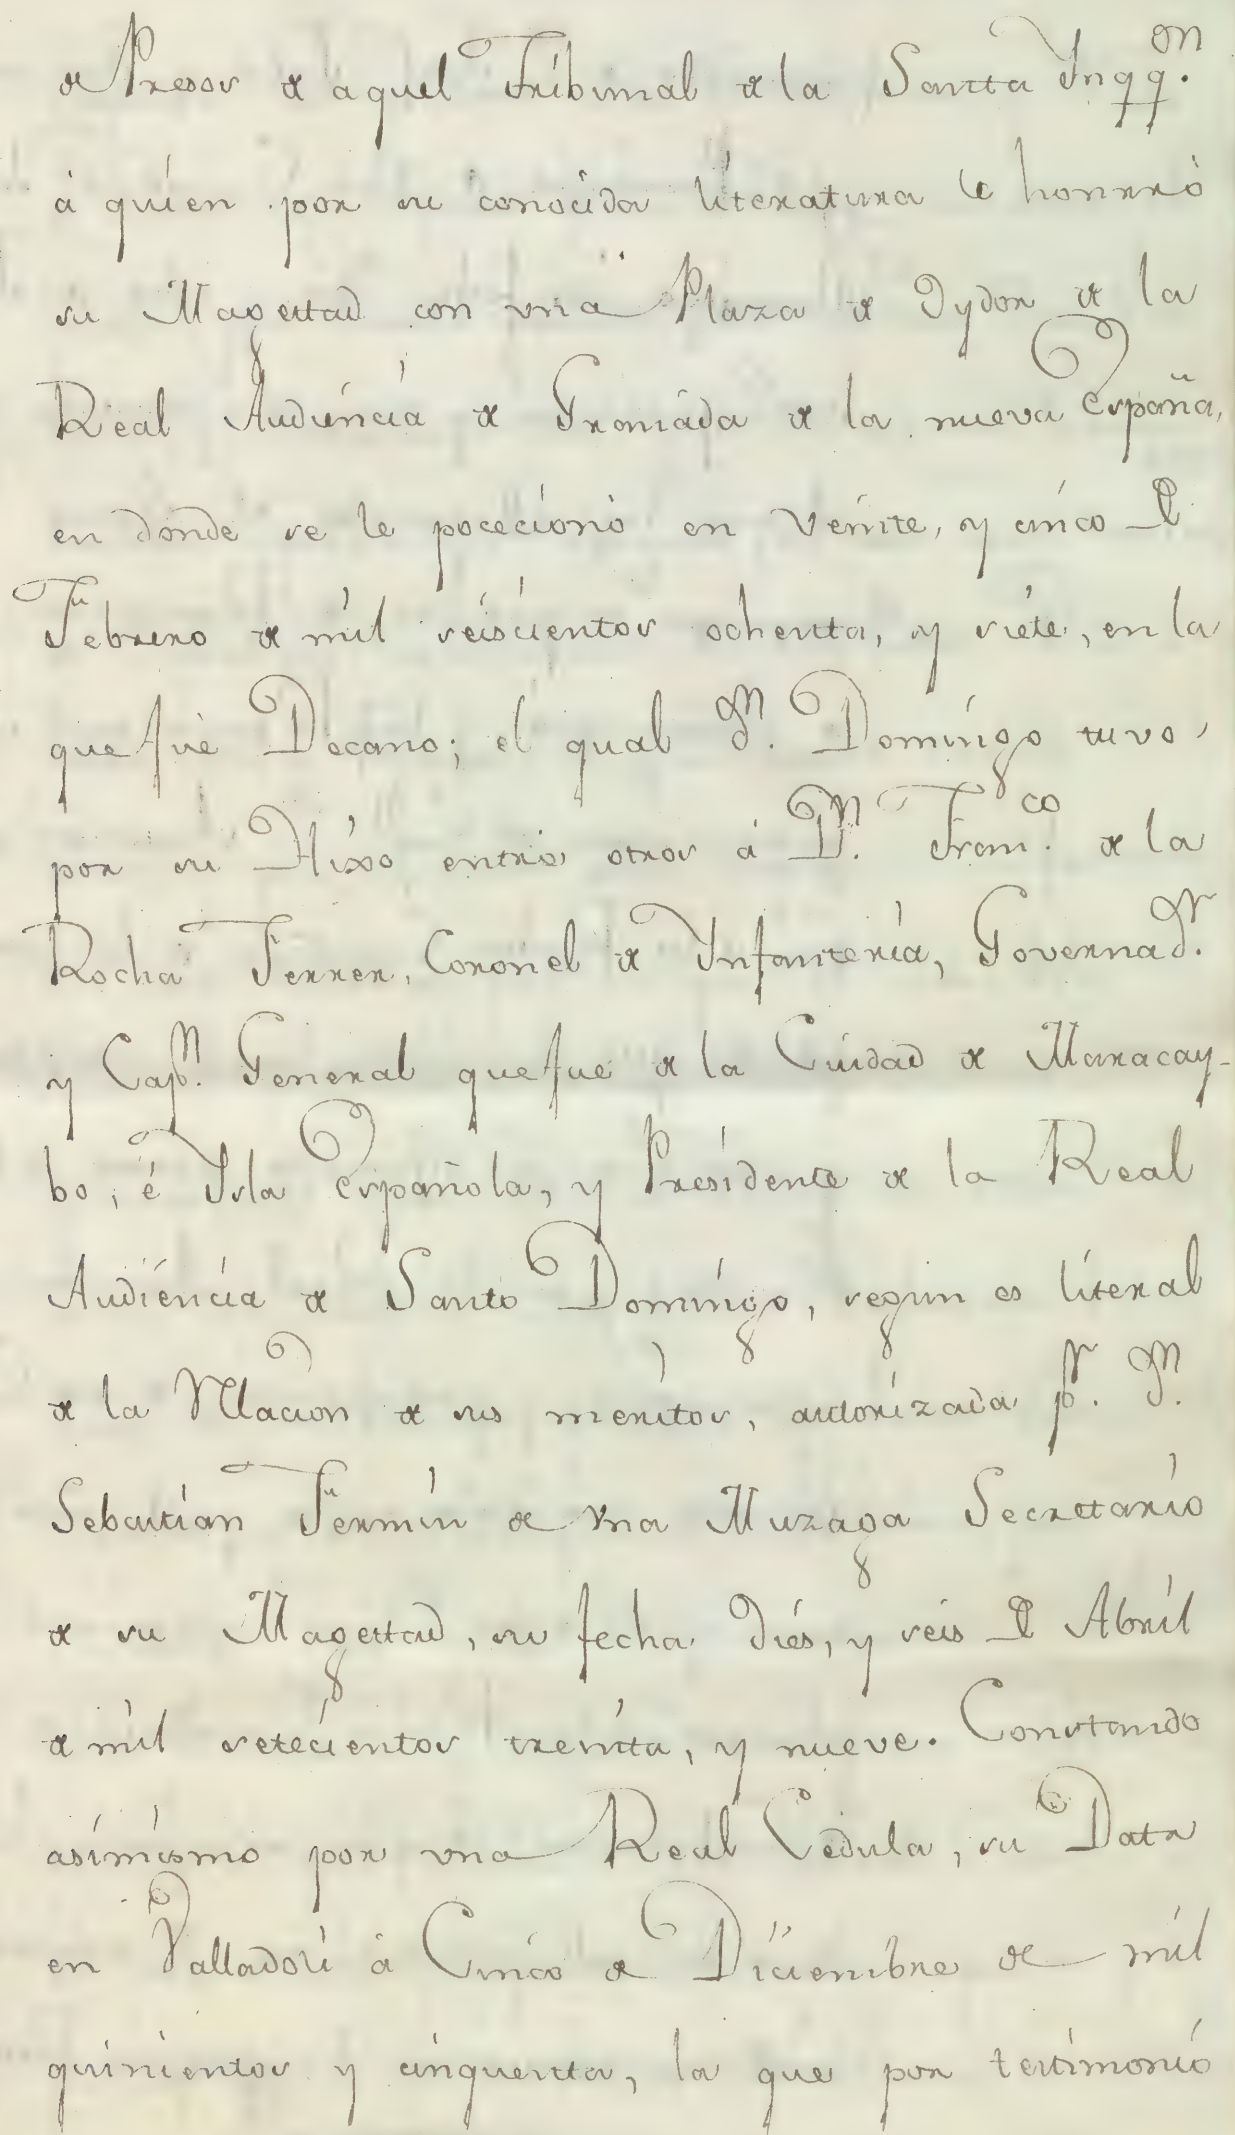 de Presos de aquel Tribunal de la Santa Ynqq.on
á quien por su conocida literatura le honrró
su Magestad con una Plaza de Oydor de la
Real Audiencia de Granáda de la nueva España,
en donde se le pocecionó en Veinte, y cinco de
Febrero de mil seiscientos ochenta, y siete, en la
que fué Decano; el qual dn. Domingo tuvo,
por su Hixo entre otros á Dn. Fran.co de la
Rocha Ferrer, Coronel de Ynfanteria, Governad.r
y Capn. General que fue de la Ciudad de Maracay-
bo, é Ysla Española, y Presidente de la Real
Audiencia de Santo Domingo, segun es literal
de la Relacion de sus meritos, autorizada pr. dn.
Sebastian Fermin de Una Muzaga Secrettario
de su Magestad, su fecha diés, y seis de Abril
de mil setecientos treinta, y nueve. Constando
asimismo por una Real Cedula, su Data
en Valladoli á Cinco de Diciembre de mil
quinientos y cinquenta, la que por testimonio